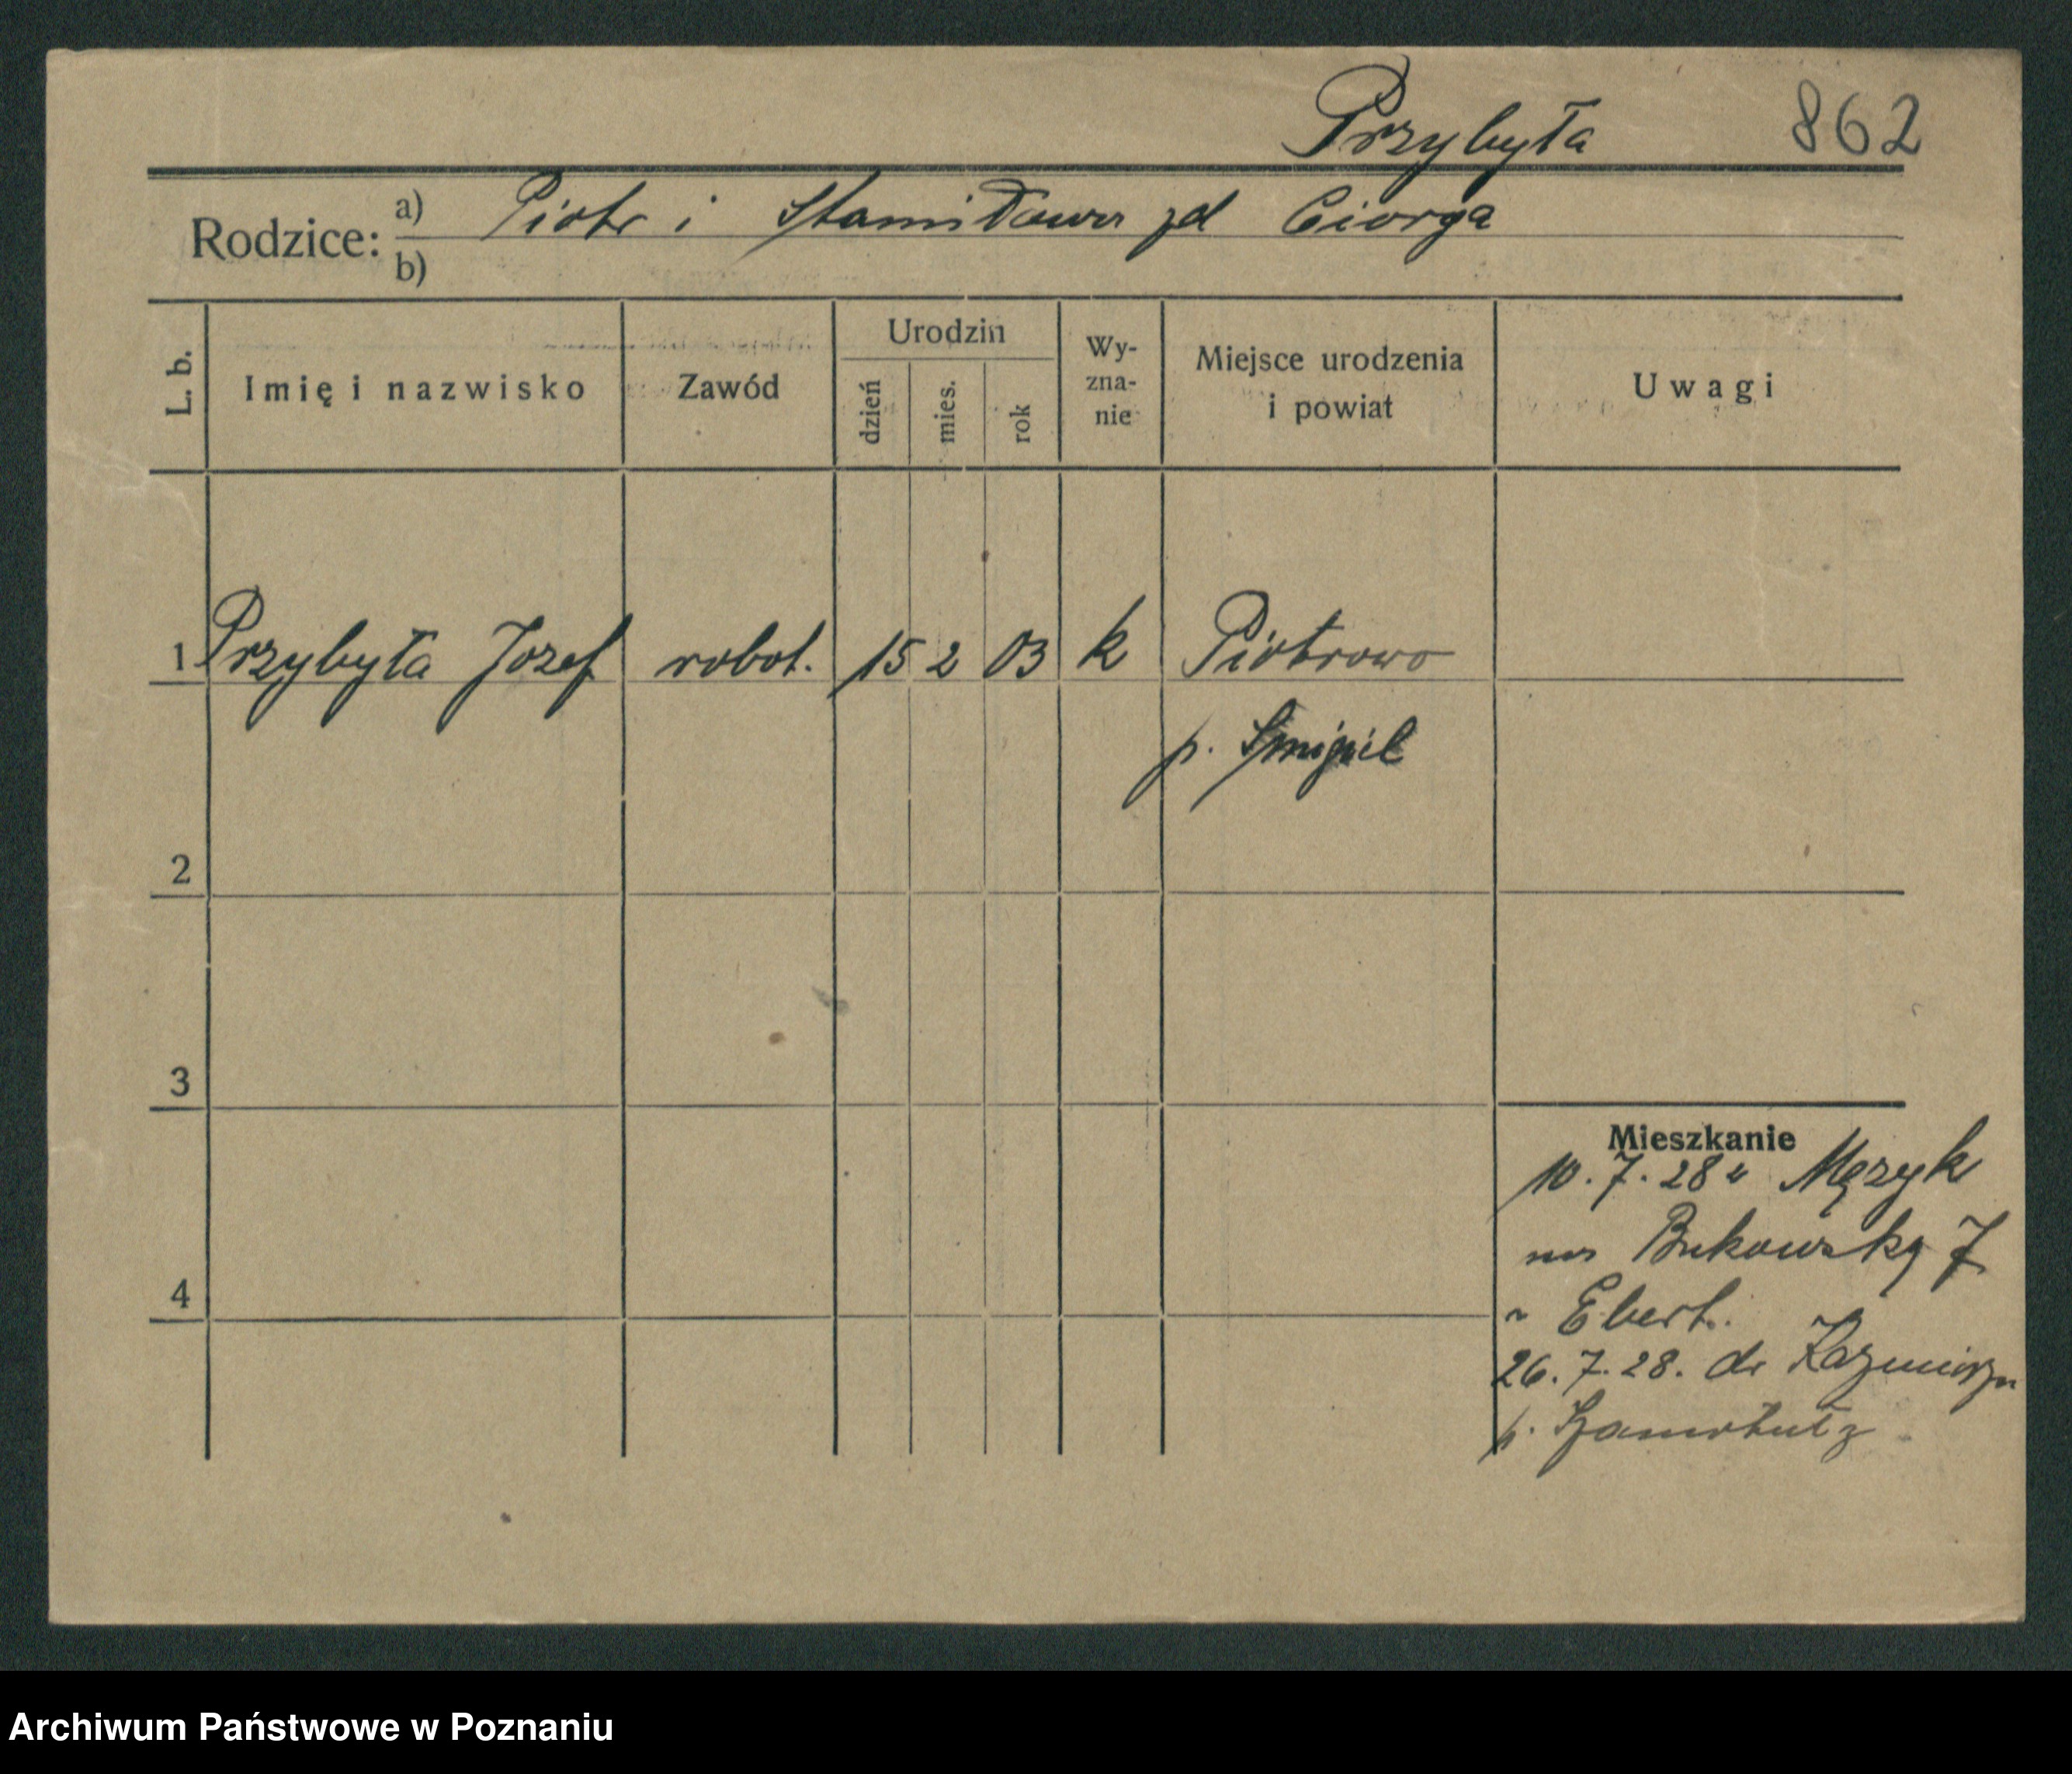 Przybyła 862
Rodzice: a) Piotr i Stanisława zd Ciorga
b)
L. b. Imię i nazwisko Zawód Urodzin dzień mies. rok Wy-zna-nie Miejsce urodzenia i powiat Uwagi
1 Przybyła Jozef robot. 15 2 03 k Piotrowo
p. Śmigiel
2
3
4
Mieszkanie
10.7.28 u Męzyk
na Bukowską 7
Ebert.
26.7.28. do Kazmierza
p. Szamotuły
Archiwum Państwowe w Poznaniu